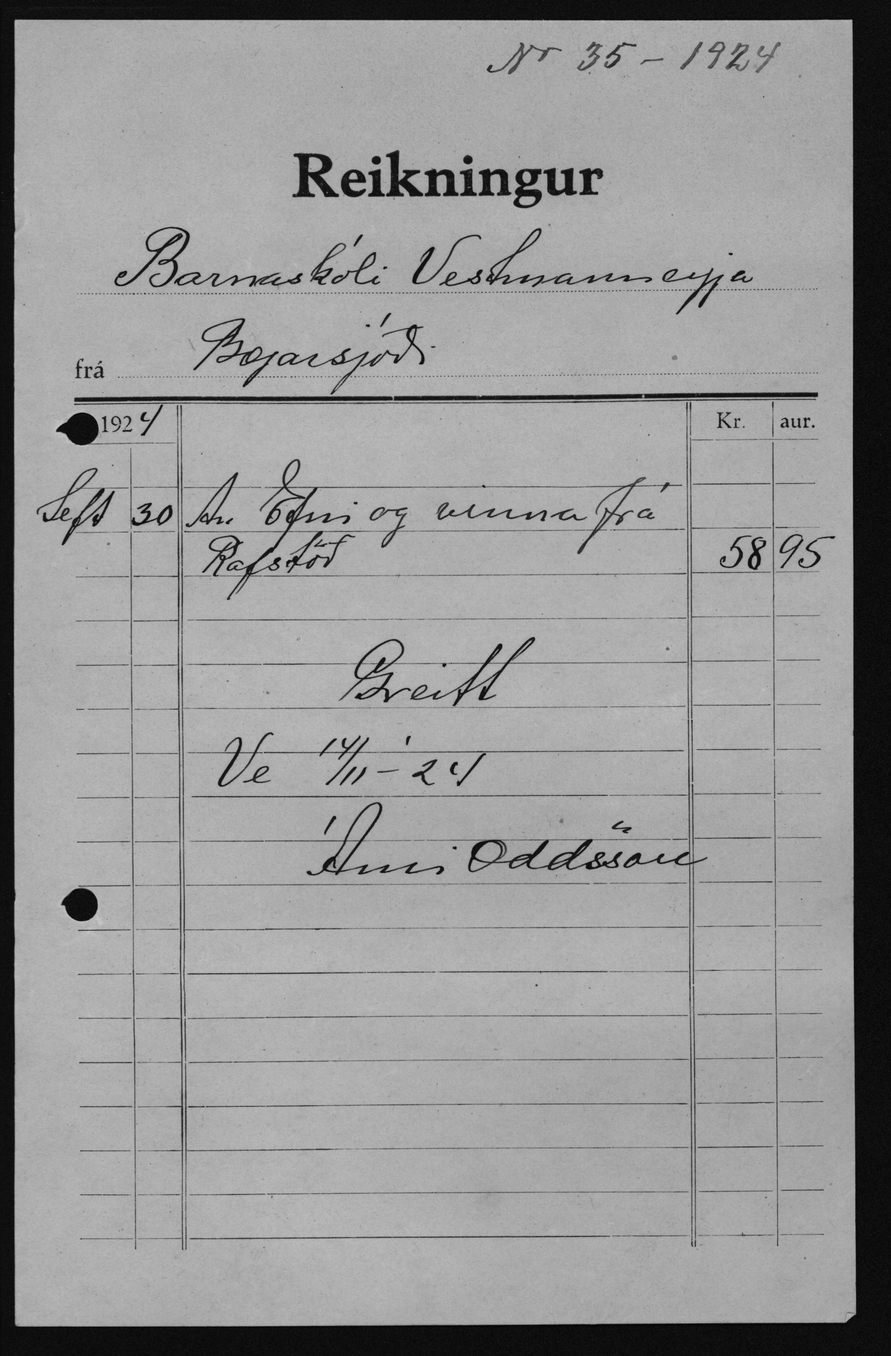 Nr 35 - 1924
Reikningur
Barnaskóli Vestmannaeyja
frá Bæjarsjóði
1924 Kr. aur.
Sept 30 An Efni og vinna frá
Rafstöð 58 95
Greitt
Ve 14/11 - 24
Árni Oddsson